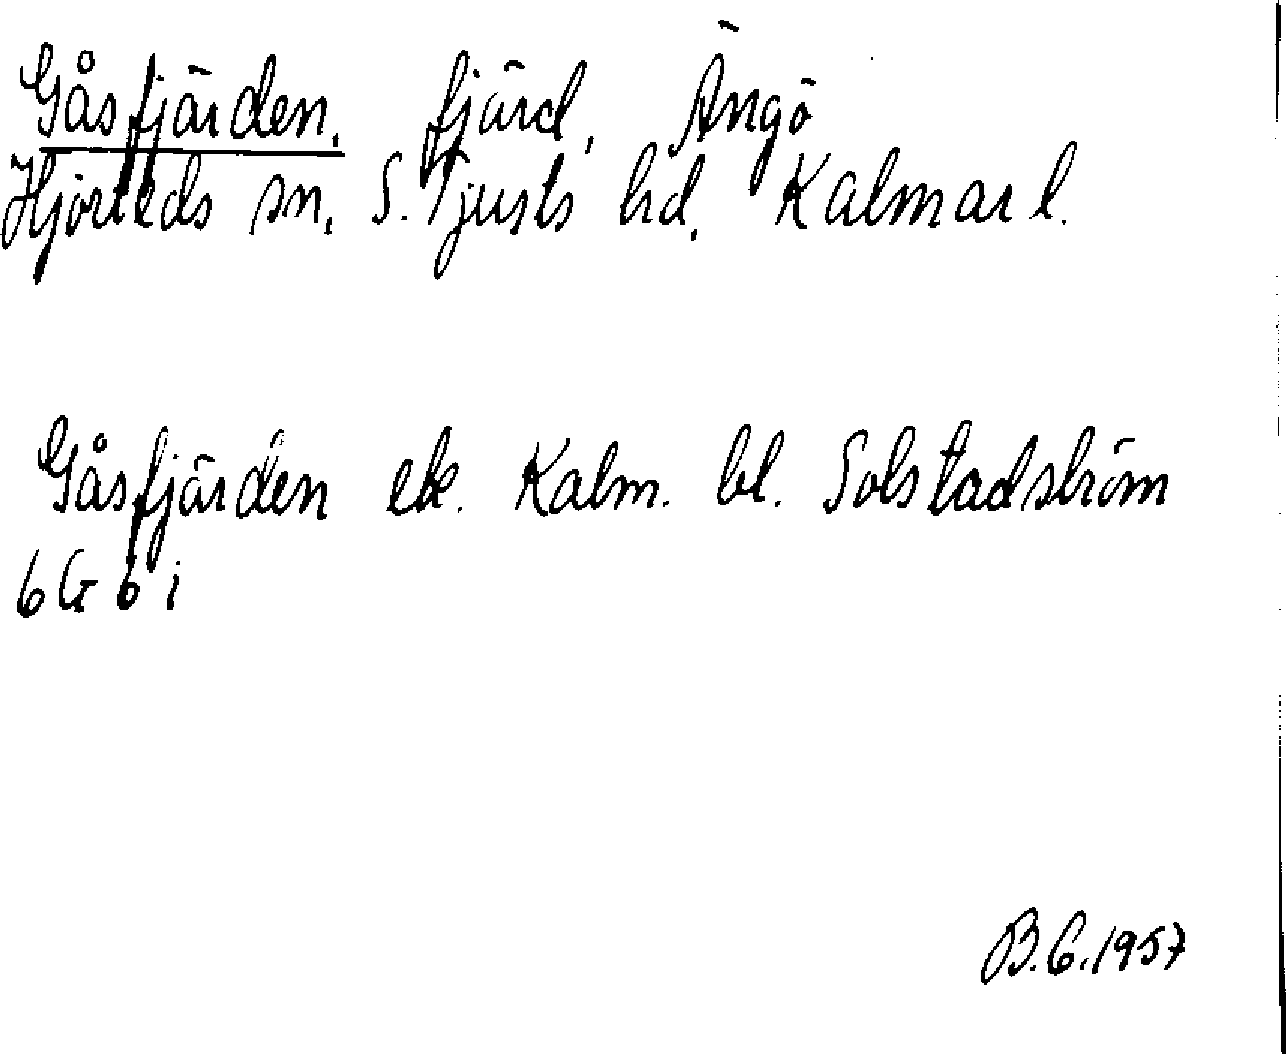 Gåsfjärden. fjärd, Ängö
Hjorteds sn. S. Tjusts hd. Kalmar l.
Gåsfjärden ek. Kalm. bl. Solstadström
6G 6 i
B.G.1957